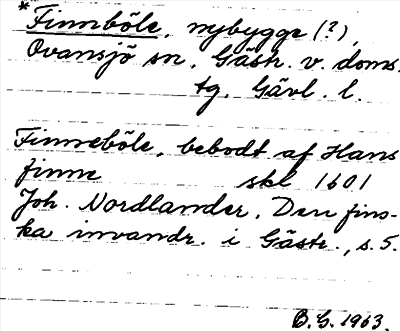 *Finnböle, nybygge (?),
Ovansjö sn, Gästr. v. doms.
tg, Gävl. l.
Finneböle, bebodt af Hans
finne skl 1601
Joh. Nordlander, Den fins-
ka invandr. i Gästr., s. 5.
B.G. 1963.